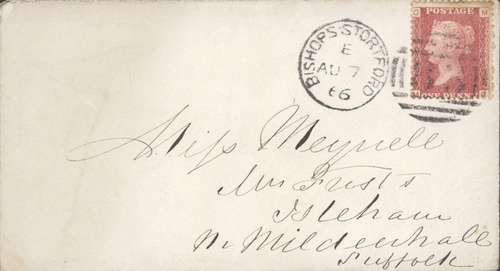 BISHOPS-STORTFORD
E
AU 7
66
G M
POSTAGE
ONE PENNY
M G
Miss Meynell
Mr Frosts
Isleham
Nr Mildenhall
Suffolk